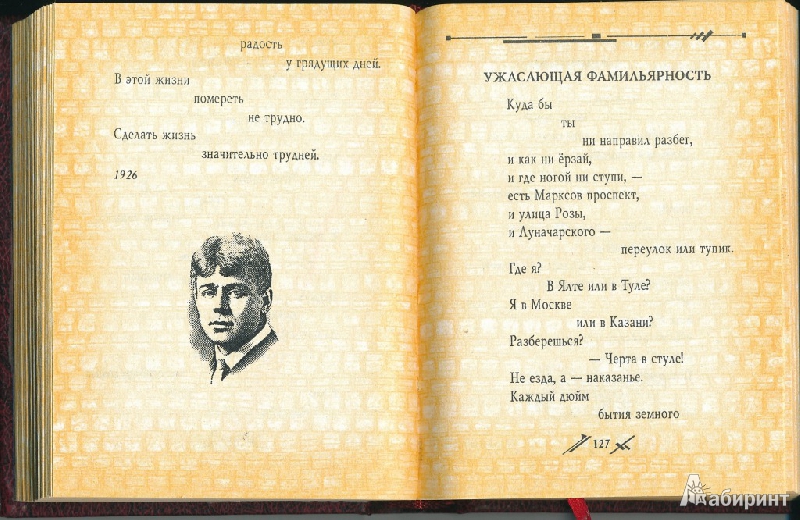 радость
у грядущих дней.
В этой жизни
помереть
не трудно.
Сделать жизнь
значительно трудней.
1926
УЖАСАЮЩАЯ ФАМИЛЬЯРНОСТЬ
Куда бы
ты
ни направил разбег,
и как ни ёрзай,
и где ногой ни ступи, —
есть Марксов проспект,
и улица Розы,
и Луначарского —
переулок или тупик.
Где я?
В Ялте или в Туле?
Я в Москве
или в Казани?
Разберешься?
— Черта в стуле!
Не езда, а — наказанье.
Каждый дюйм
бытия земного
127
Лабиринт